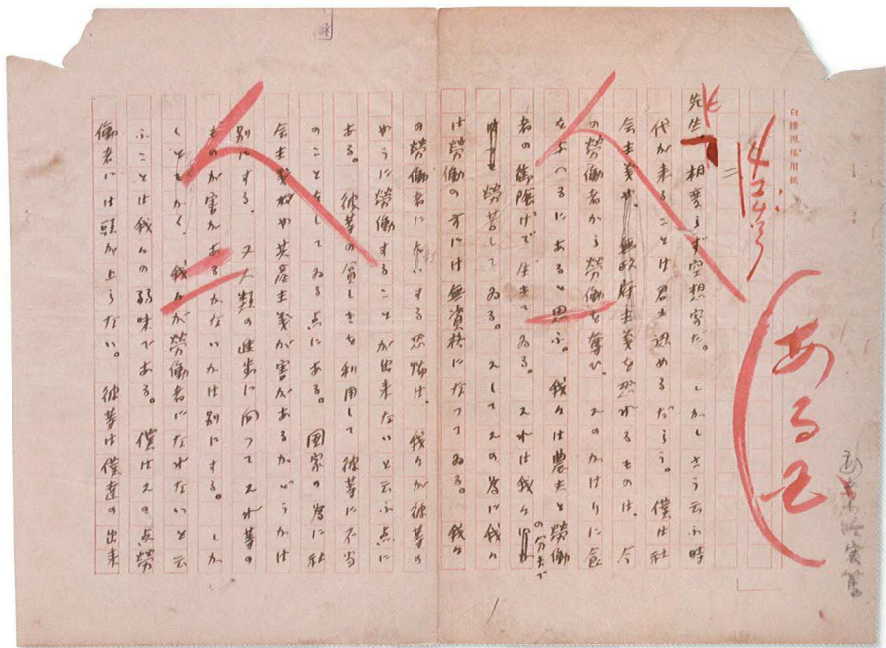 白樺原稿用紙
ある国
二
先生、相変らず空想家だ。しかしさう云ふ時
代が来ることは君も認めるだらう。僕は社
会主義や、無政府主義を恐れるものは、今
の労働者から労働を奪ひ、そのかはりに食
を与へるにあると思ふ。我々は農夫と労働
者の御陰げで生きてゐる。それは我々
の分まで
労苦してゐる。そしてその為に我々
は労働の方には無資格になつてゐる。我々
の労働者にたいする恐怖は、我々が彼等の
やうに労働することが出来ないと云ふ点に
ある。彼等の貧しさを利用して彼等に不当
のことをしてゐる点にある。国家の為に社
会主義や共産主義が害があるかどうかは
別にする。又人類の進歩に向つてそれ等の
ものが害があるかないかは別にする。しか
しともかく、我々が労働者になれないと云
ふことは我々の弱味である。僕はその点労
働者には頭が上らない。彼等は僕達の出来